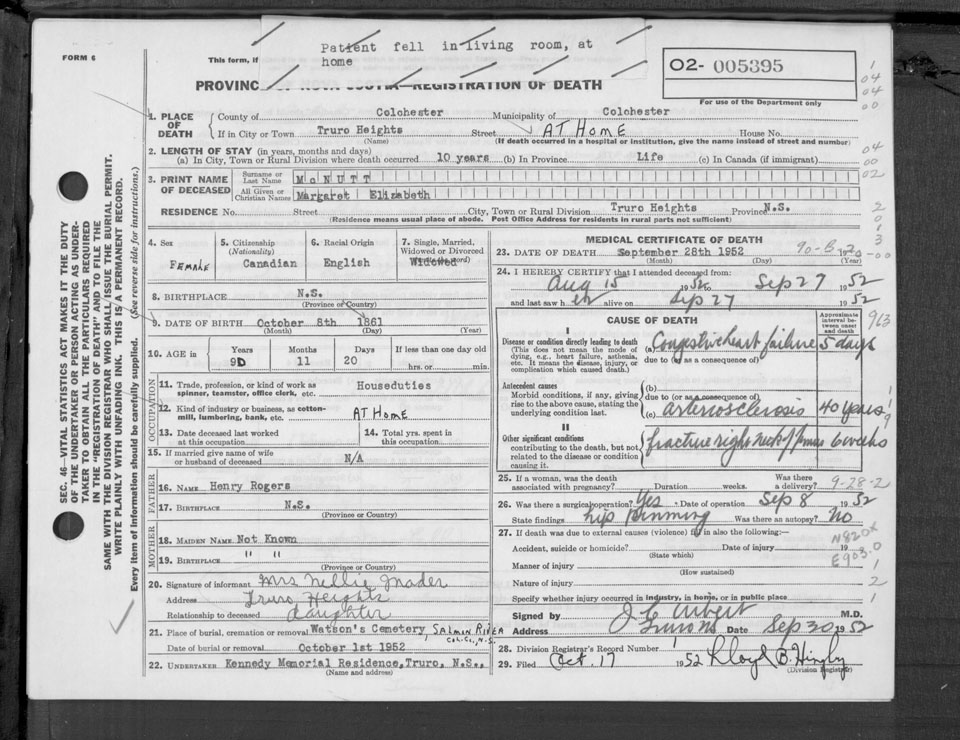 Patient fell in living room, at
home
FORM 6
This form, if
02- 005395
For use of the Department only
PROVINC REGISTRATION OF DEATH
1. PLACE OF DEATH
County of Colchester Municipality of Colchester
If in City or Town Truro Heights Street AT HOME House No.
(Name) (If death occurred in a hospital or institution, give the name instead of street and number)
2. LENGTH OF STAY (in years, months and days)
(a) In City, Town or Rural Division where death occurred 10 years (b) In Province Life (c) In Canada (if immigrant)
3. PRINT NAME OF DECEASED
Surname or Last Name McNUTT
All Given or Christian Names Margaret Elizabeth
RESIDENCE No. Street City, Town or Rural Division Truro Heights Province N.S.
(Residence means usual place of abode. Post Office Address for residents in rural parts not sufficient)
4. Sex FEMALE
5. Citizenship (Nationality) Canadian
6. Racial Origin English
7. Single, Married, Widowed or Divorced Widowed
8. BIRTHPLACE N.S.
(Province or Country)
9. DATE OF BIRTH October 8th 1861
(Month) (Day) (Year)
10. AGE in Years 90 Months 11 Days 20 If less than one day old
hrs. or min.
OCCUPATION
11. Trade, profession, or kind of work as spinner, teamster, office clerk, etc. Houseduties
12. Kind of industry or business, as cotton-mill, lumbering, bank, etc. AT HOME
13. Date deceased last worked at this occupation
14. Total yrs. spent in this occupation
15. If married give name of wife or husband of deceased N/A
FATHER
16. NAME Henry Rogers
17. BIRTHPLACE N.S.
(Province or Country)
MOTHER
18. MAIDEN NAME Not Known
19. BIRTHPLACE " "
(Province or Country)
20. Signature of informant Mrs Nellie Mader
Address Truro Heights
Relationship to deceased daughter
21. Place of burial, cremation or removal Watson's Cemetery, SALMON RIVER
COL. CO., N.S.
Date of burial or removal October 1st 1952
22. UNDERTAKER Kennedy Memorial Residence, Truro, N.S.,
(Name and address)
MEDICAL CERTIFICATE OF DEATH
23. DATE OF DEATH September 28th 1952
(Month) (Day) (Year)
24. I HEREBY CERTIFY that I attended deceased from:
Aug 15 1952 to Sep 27 1952
and last saw h er alive on Sep 27 1952
CAUSE OF DEATH
Approximate interval between onset and death
I
Disease or condition directly leading to death (a) Congestive heart failure 5 days
(This does not mean the mode of dying, e.g., heart failure, asthenia, etc. It means the disease, injury, or complication which caused death.)
due to (or as a consequence of)
Antecedent causes (b)
Morbid conditions, if any, giving rise to the above cause, stating the underlying condition last.
due to (or as a consequence of)
(c) arteriosclerosis 40 years
II
Other significant conditions contributing to the death, but not related to the disease or condition causing it.
fracture right neck of femur 6 weeks
25. If a woman, was the death associated with pregnancy? Duration weeks. Was there a delivery? 9-28-2
26. Was there a surgical operation? Yes Date of operation Sep 8 1952
State findings hip pinning Was there an autopsy? No
27. If death was due to external causes (violence) fill in also the following:—
Accident, suicide or homicide? Date of injury 19
(State which)
Manner of injury
(How sustained)
Nature of injury
Specify whether injury occurred in industry, in home, or in public place
N820
E903.0
Signed by M.D.
Address Truro NS Date Sep 30 1952
28. Division Registrar's Record Number
29. Filed Oct. 17 1952 Lloyd B.
(Division Registrar)
SEC. 46—VITAL STATISTICS ACT MAKES IT THE DUTY
OF THE UNDERTAKER OR PERSON ACTING AS UNDER-
TAKER TO OBTAIN ALL THE PARTICULARS REQUIRED
IN THE "REGISTRATION OF DEATH" AND TO FILE THE
SAME WITH THE DIVISION REGISTRAR WHO SHALL ISSUE THE BURIAL PERMIT.
WRITE PLAINLY WITH UNFADING INK. THIS IS A PERMANENT RECORD.
Every item of information should be carefully supplied. (See reverse side for instructions.)
1
04
04
00
04
00
02
963